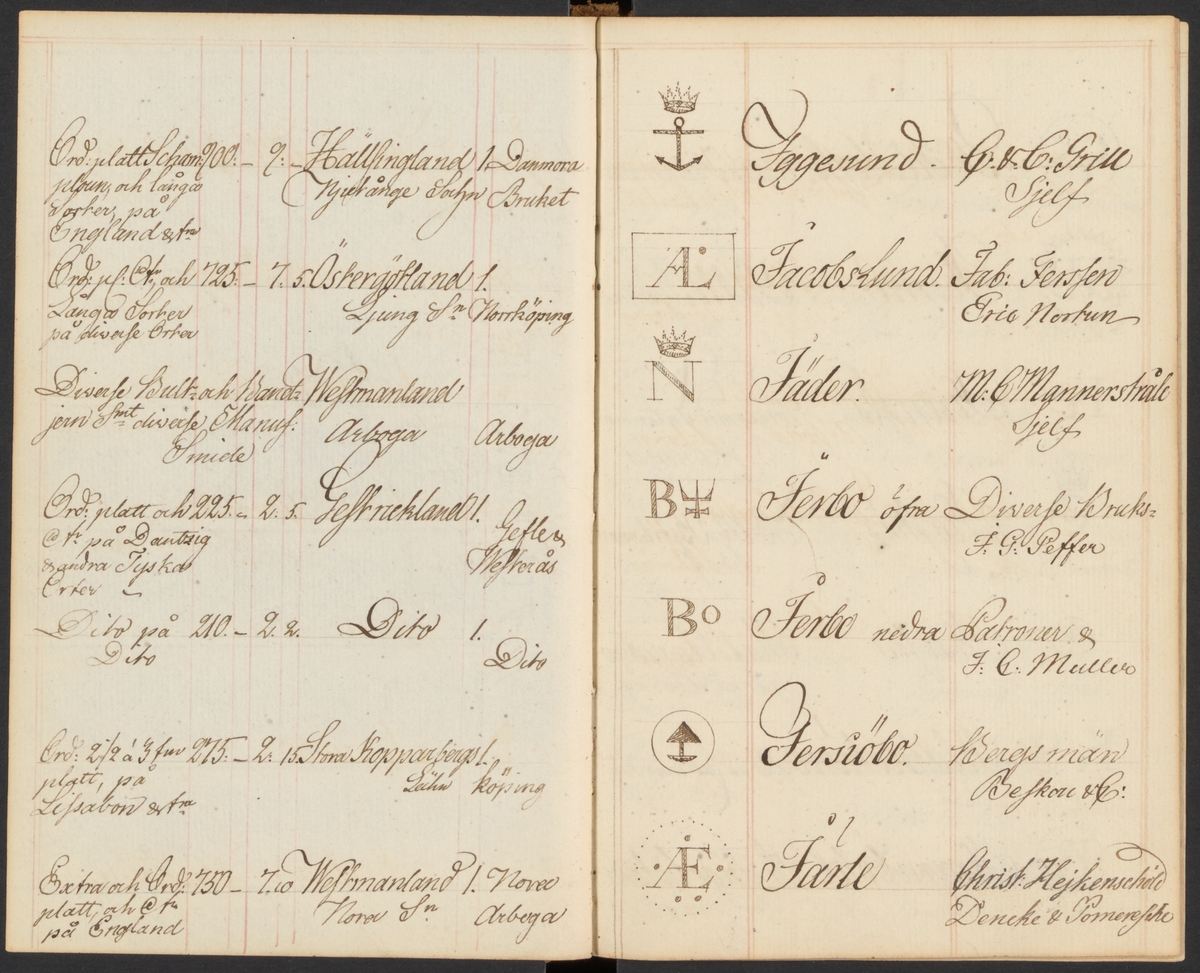 Ord: platt Scham: 900:– 9:– Hällsingland 1. Danmora
ploun, och långa Njutånger Sochn Bruket
Sorter, på
England &tra
Ord: pl: Ctr, och 725:– 7. 5. Östergötland 1.
Långa Sorter Ljung Sn Norrköping
på diverse Orter
Diverse Bult- och Band- Westmanland
jern Smt diverse Manuf: Arboga Arboga
Smide
Ord: platt och 225:– 2. 5. Gestrickland 1.
Ctr på Dantzig Gefle &
& andra Tyska Westerås
Orter
Dito på 210.– 2. 2. Dito 1.
Dito Dito
Ord: 2 1/2 á 3 tum 275:– 2: 15. Stora Kopparbergs 1.
platt, på Lähn Köping
Lissabon & tra
Extra och Ord: 750– 7. 10 Westmanland 1. Nora
platt, och Ctr Nora Sn Arboga
på England
Iggesund. C: & C: Grill
Sjelf
ÆL Jacobslund. Jab: Ferssen
Eric Nortun
N Jäder. M: C Mannerstråle
Sjelf
B Jerbo öfra Diverse Bruks=
J: G: Peffer
Bo Jerbo nedra Patroner &
J: C: Muller
Jersiöbo. Bergsmän
Beskou & C:
Æ Järle Christ: Hejkenschöld
Dencke & Pomeresche